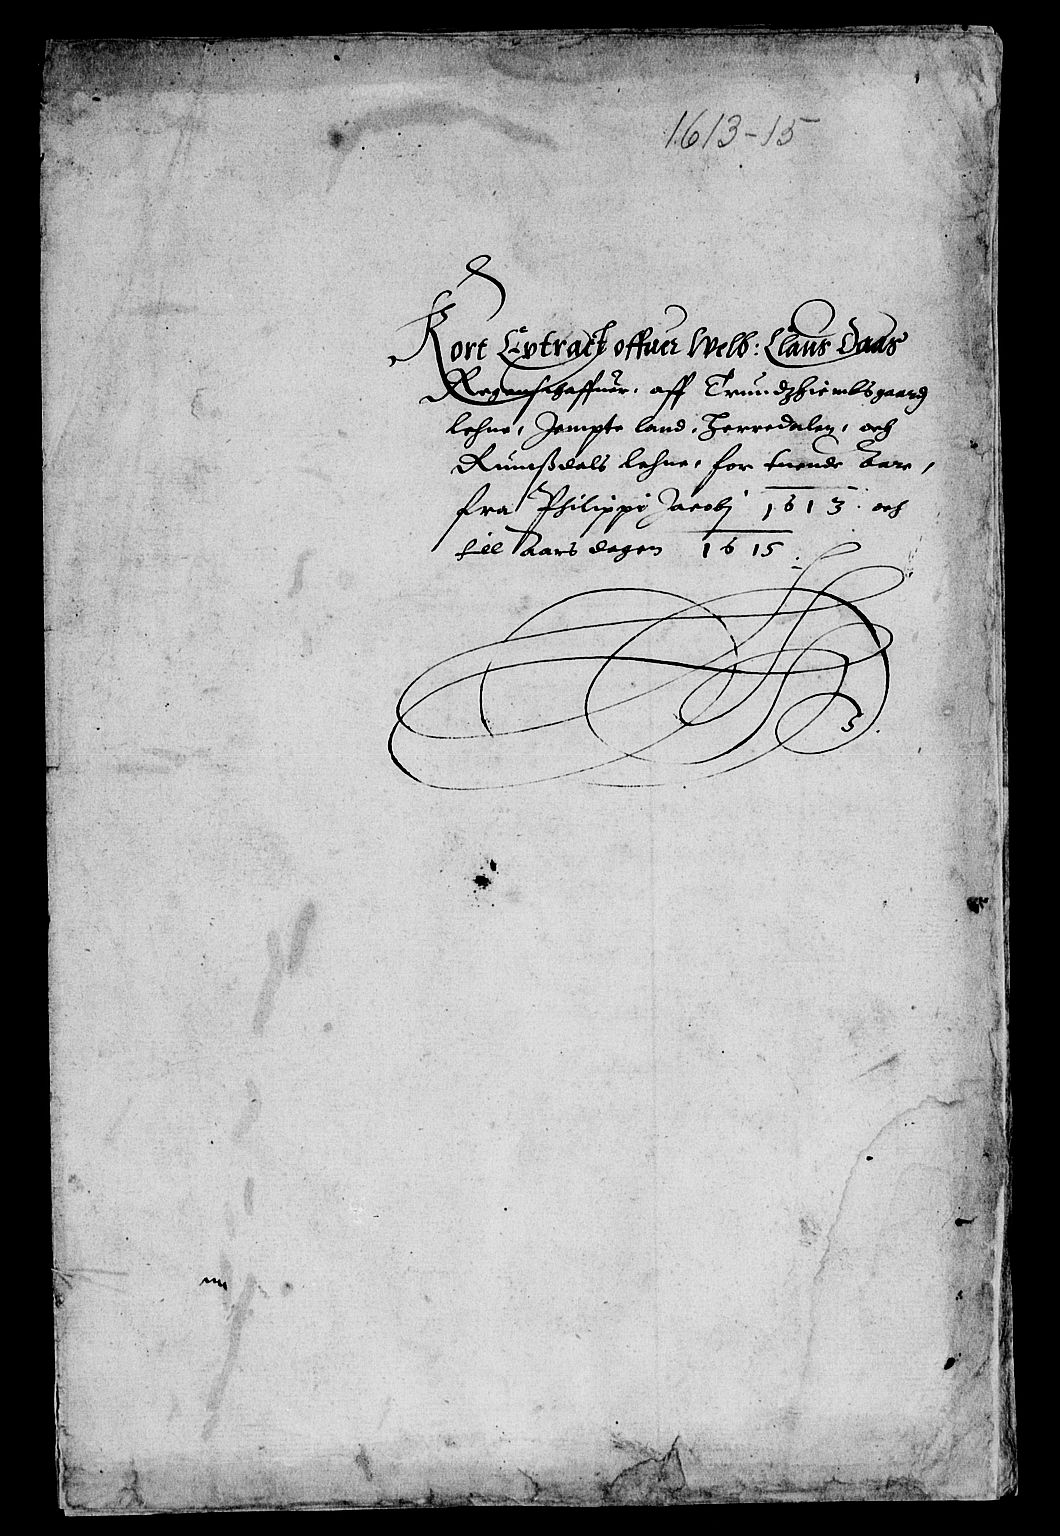 1613-15
Kort Extract offuer Welb: Claus Daas
Regenschaffuer. aff Trundhiembsgaard
lehne, Jempte land, Herredalen, och
Rumßdals lehne, for tuende Aare,
fra Philippi Jacobj 1613. och
till Aars dagen 1615.